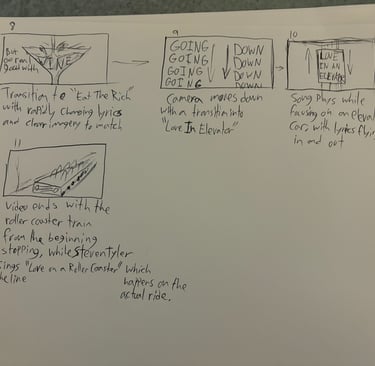 8
But
our real
good with
WINE
Transition to "Eat The Rich"
with rapidly changing lyrics
and clear imagery to match
9
GOING DOWN
GOING DOWN
GOING DOWN
GOING DOWN
Camera moves down
with a transition into
"Love In Elevator"
10
LOVE
IN AN
ELEVATOR
Song Plays while
focusing on an eleva
car, with lyrics flyin
in and out
11
video ends with the
roller coaster train
from the beginning
stopping, while Steven Tyler
sings "Love on a Roller Coaster" which
the line happens on the
actual ride.